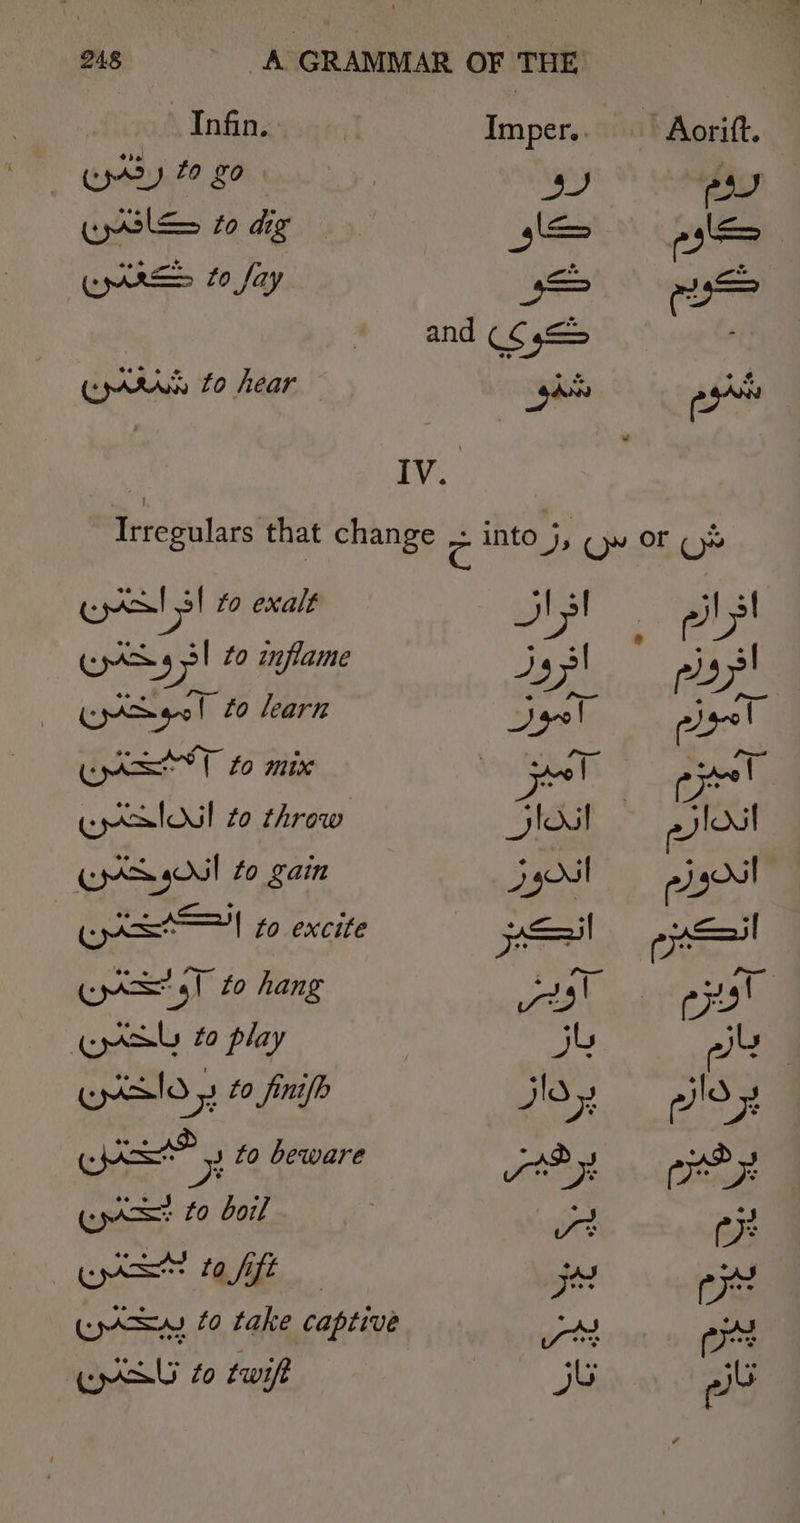 248 A GRAMMAR OF THE
Infin. Imper. Aorist.
رفتن to go رو روم
کافتن to dig کاو کاوم
کفتن to say کو کویم
and کوی
شنفتن to hear شنو شنوم
IV.
Irregulars that change خ into ز, س or ش
افراختن to exalt افراز افرازم
افروختن to inflame افروز افروزم
آموختن to learn آموز آموزم
آمیختن to mix آمیز آمیزم
انداختن to throw انداز اندازم
اندوختن to gain اندوز اندوزم
انکیختن to excite انکیز انکیزم
آویختن to hang آویز آویزم
باختن to play باز بازم
پرداختن to finish پرداز پردازم
پرهیختن to beware پرهیز پرهیزم
پختن to boil پز پزم
بیختن to sift بیز بیزم
یختن to take captive
تاختن to twist تاز تازم